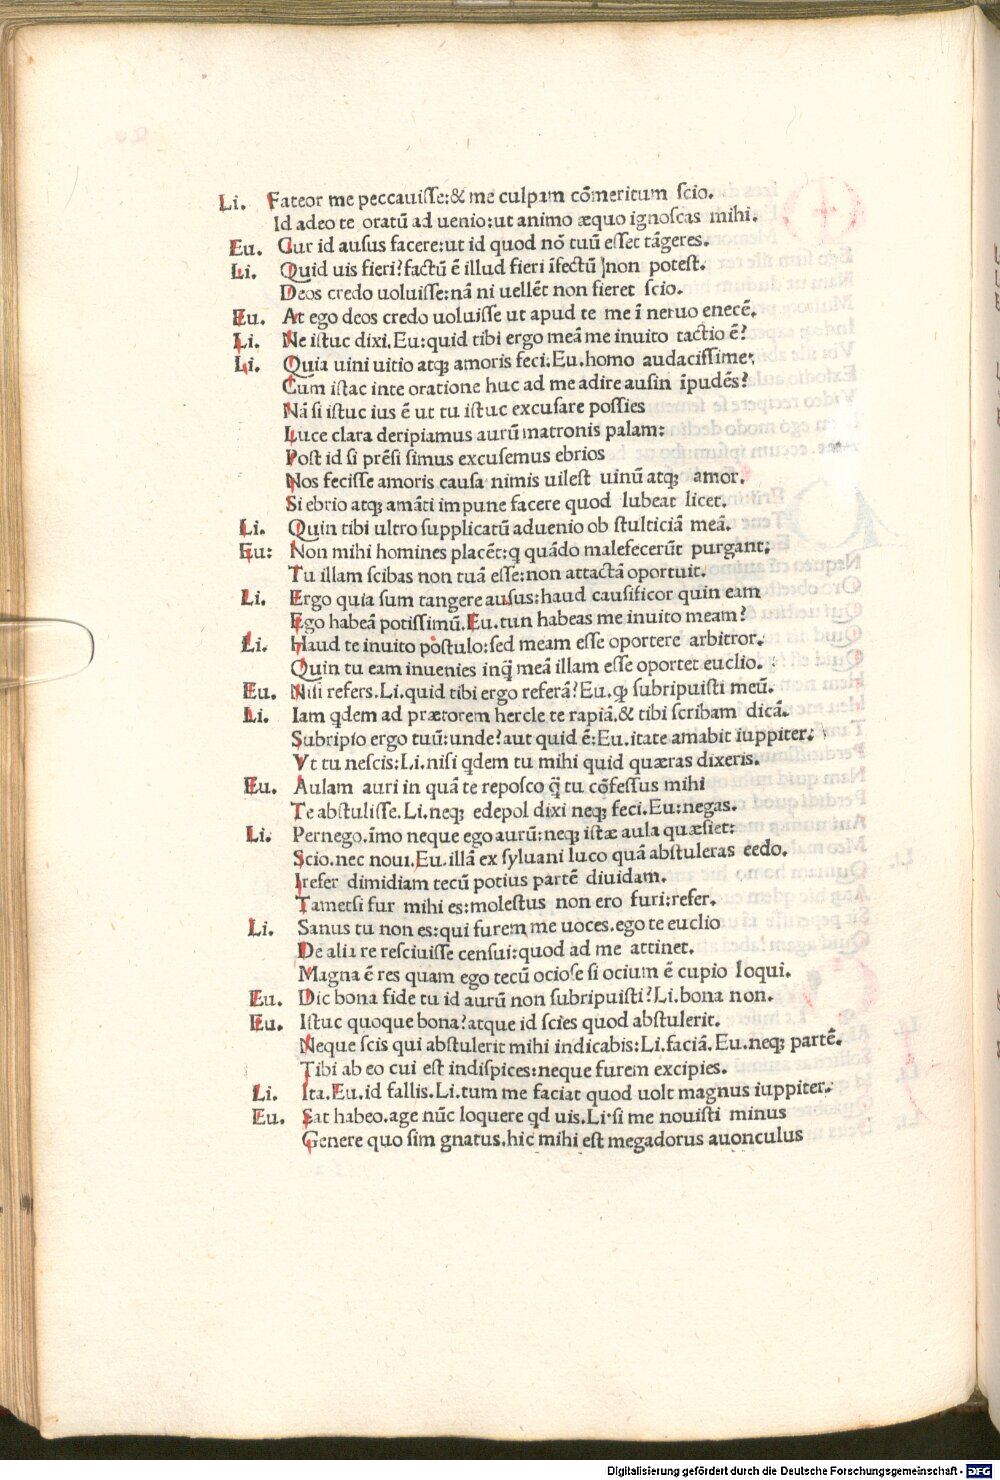 Li. Fateor me peccauisse:& me culpam cōmeritum scio.
Id adeo te oratū ad uenio:ut animo æquo ignoscas mihi.
Eu. Cur id ausus facere:ut id quod nō tuū esset tāgeres.
Li. Quid uis fieri?factū ē illud fieri īfectū non potest.
Deos credo uoluisse:nā ni uellēt non fieret scio.
Eu. At ego deos credo uoluisse ut apud te me ī neruo enecē.
Li. Ne istuc dixi.Eu:quid tibi ergo meā me inuito tactio ē?
Li. Quia uini uitio atq; amoris feci.Eu.homo audacissime:
Cum istac inte oratione huc ad me adire ausin īpudēs?
Nā si istuc ius ē ut tu istuc excusare possies
Luce clara deripiamus aurū matronis palam:
Post id si prēsi simus excusemus ebrios
Nos fecisse amoris causa nimis uilest uinū atq; amor.
Si ebrio atq; amāti impune facere quod lubeat licet.
Li. Quin tibi ultro supplicatū aduenio ob stulticiā meā.
Eu: Non mihi homines placēt:q quādo malefecerūt purgant.
Tu illam scibas non tuā esse:non attactā oportuit.
Li. Ergo quia sum tangere ausus:haud causificor quin eam
Ego habeā potissimū.Eu.tun habeas me inuito meam?
Li. Haud te inuito postulo:sed meam esse oportere arbitror.
Quin tu eam inuenies inq̄ meā illam esse oportet euclio.
Eu. Nisi refers.Li.quid tibi ergo referā?Eu.ꝙ subripuisti meū.
Li. Iam qdem ad prætorem hercle te rapiā.& tibi scribam dicā.
Subripio ergo tuū:unde?aut quid ē:Eu.itate amabit iuppiter:
Vt tu nescis:Li.nisi qdem tu mihi quid quæras dixeris.
Eu. Aulam auri in quā te reposco q̄ tu cōfessus mihi
Te abstulisse.Li.neq; edepol dixi neq; feci.Eu:negas.
Li. Pernego.īmo neque ego aurū:neq; istæ aula quæsiet:
Scio.nec noui.Eu.illā ex syluani luco quā abstuleras eedo.
Irefer dimidiam tecū potius partē diuidam.
Tametsi fur mihi es:molestus non ero furi:refer.
Li. Sanus tu non es:qui furem me uoces.ego te euclio
De alia re resciuisse censui:quod ad me attinet.
Magna ē res quam ego tecū ociose si ocium ē cupio loqui.
Eu. Dic bona fide tu id aurū non subripuisti?Li.bona non.
Eu. Istuc quoque bona?atque id scies quod abstulerit.
Neque scis qui abstulerit mihi indicabis:Li.faciā.Eu.neq; partē.
Tibi ab eo cui est indispices:neque furem excipies.
Li. Ita.Eu.id fallis.Li.tum me faciat quod uolt magnus iuppiter:
Eu. Sat habeo.age nūc loquere qd uis.Li.si me nouisti minus
Genere quo sim gnatus.hic mihi est megadorus auonculus
Digitalisierung gefördert durch die Deutsche Forschungsgemeinschaft - DFG